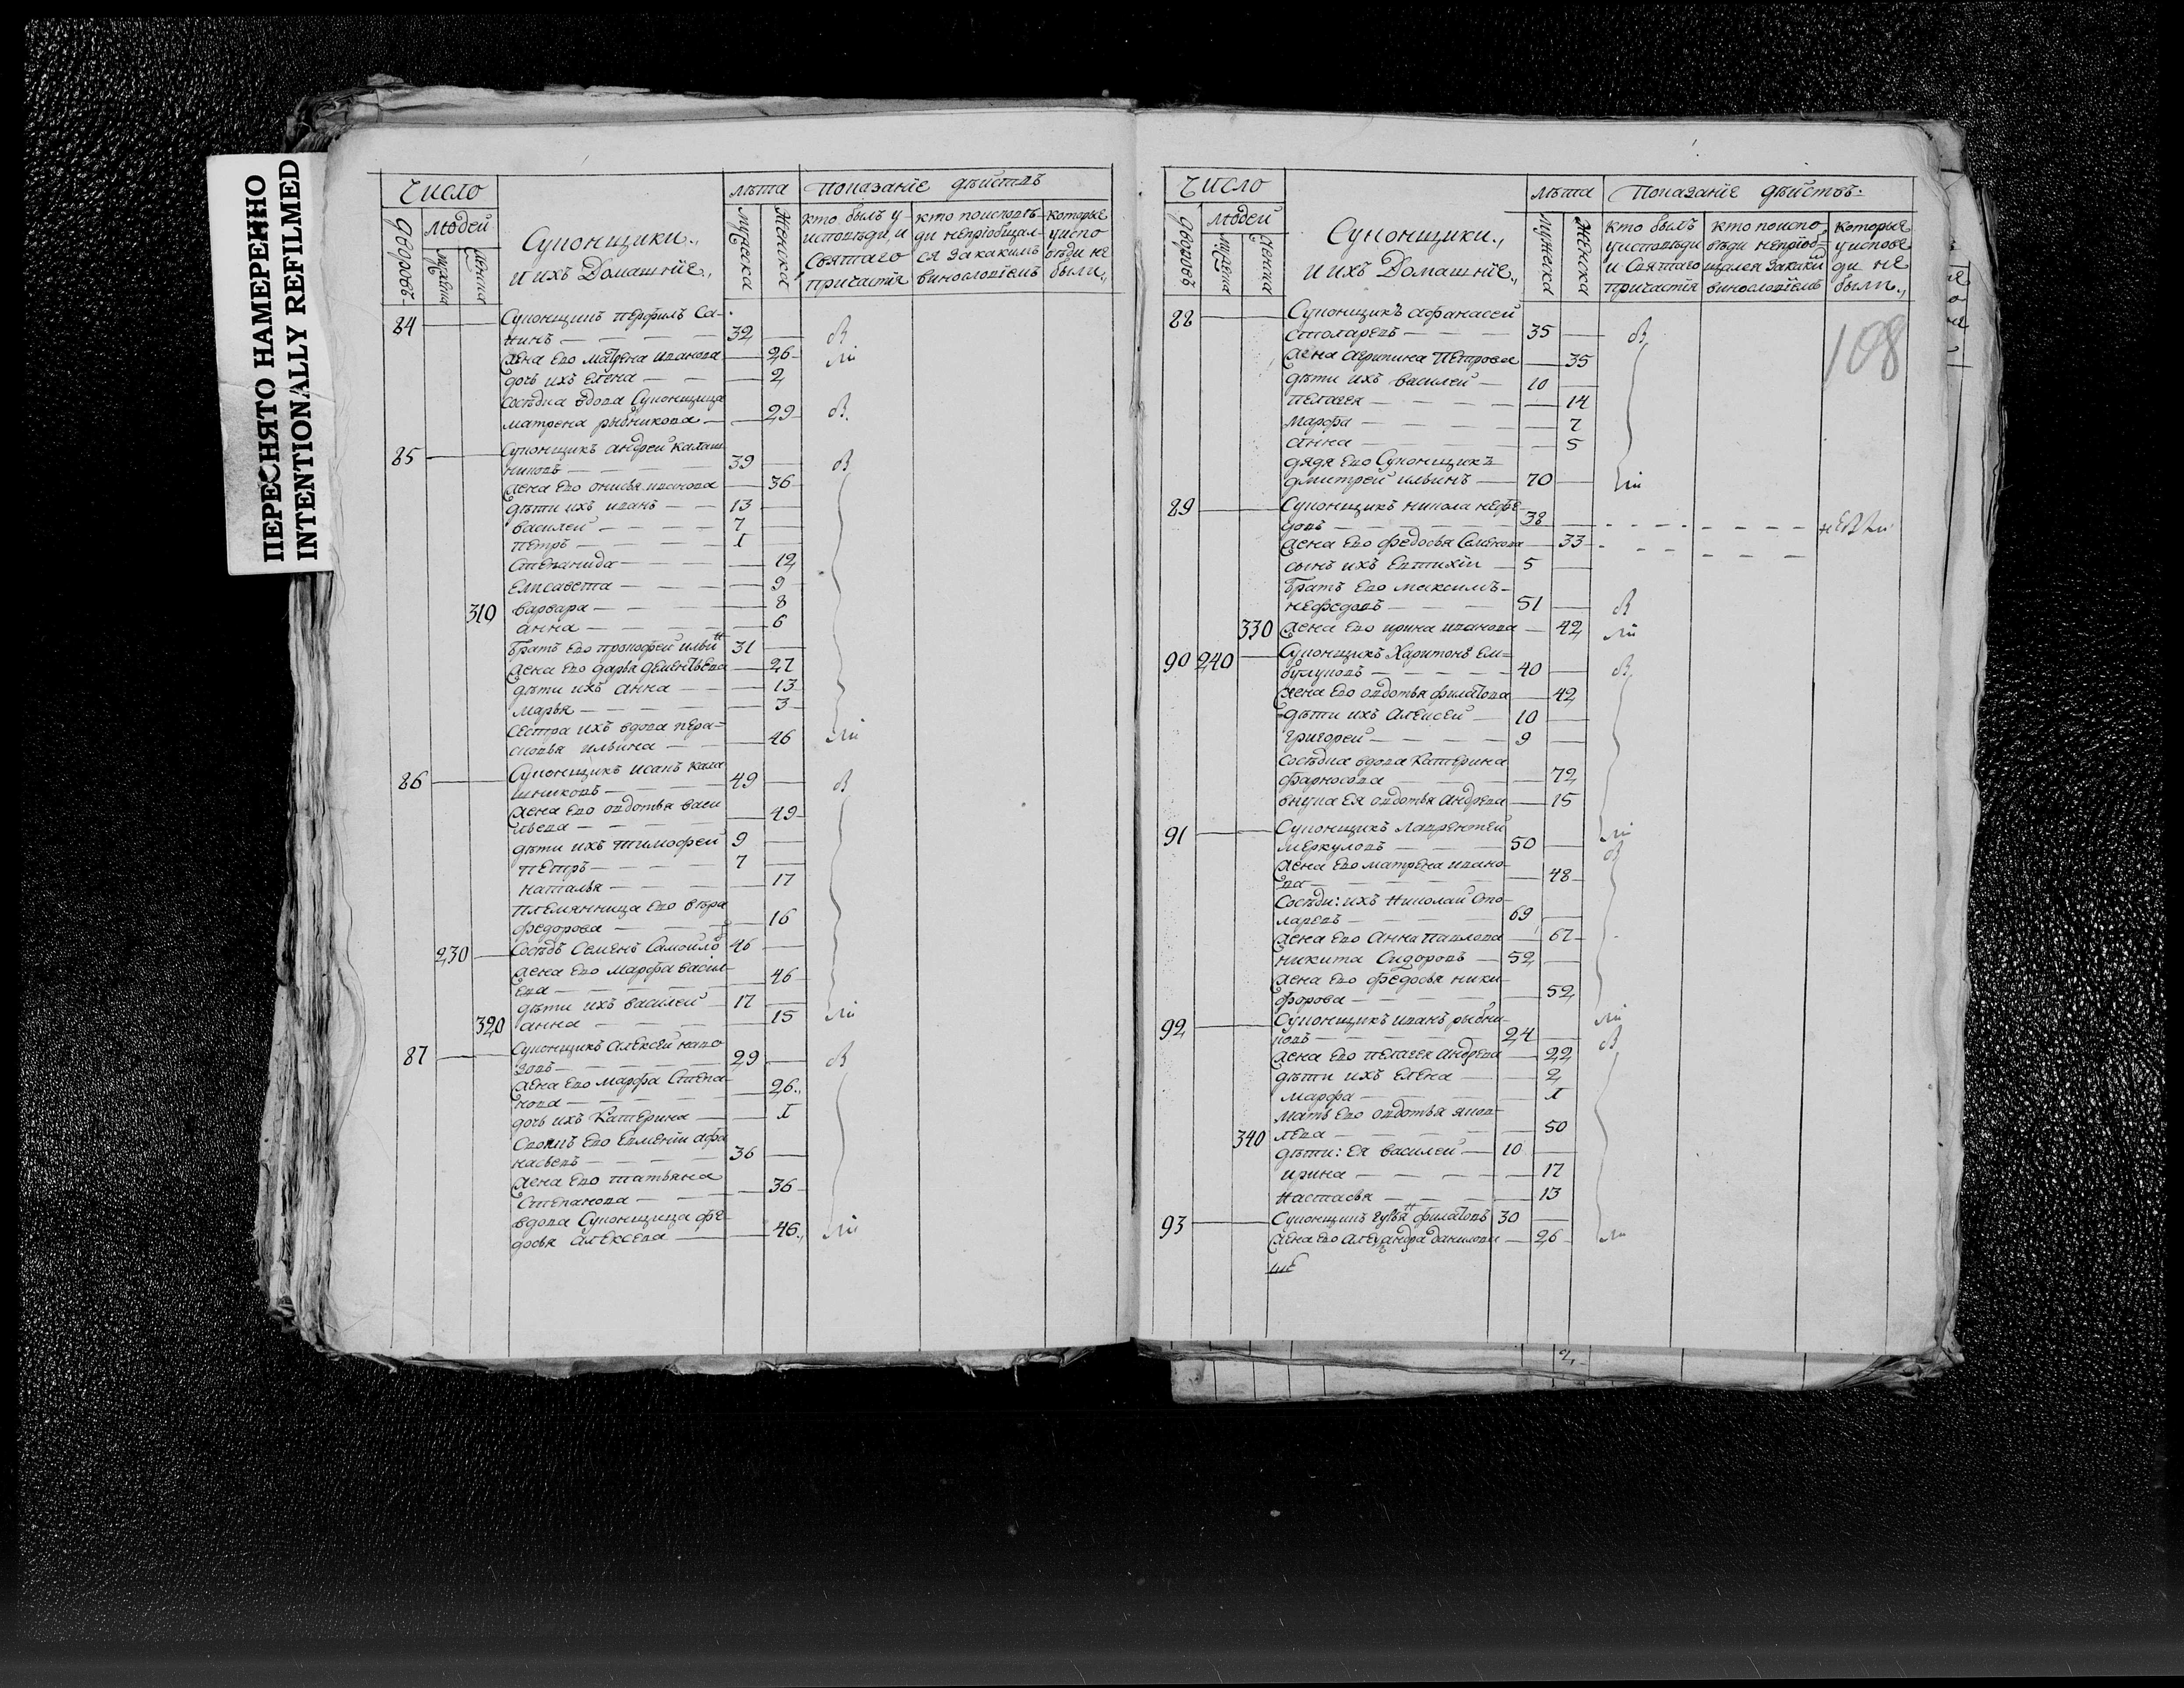 ПЕРЕСНЯТО НАМЕРЕННО
INTENTIONALLY REFILMED
Число
лѣта
показанїе дѣйствъ
дворовъ
людей
мужеска
женска
Суконщики.,
и ихъ Домашнїе.,
мужеска
женска
кто былъ у
исповѣди, и
святаго
причастїя
кто по исповѣ-
ди непрїобщал-
ся за какимъ
винословїемъ
которые
у испо
вѣди не
были.,
84
Суконщикъ перфилъ Са-
нинъ 32
жена ево матрена иванова 26
дочь ихъ елена 2
сосѣдка вдова Суконщица
матрена рыбникова 29
85
Суконщикъ андрей калаш
никовъ 39
жена ево иванова 36
дѣти ихъ иванъ 13
василей 7
петръ 1
степанида 12
елисавета 9
310 варвара 8
анна 6
братъ ево прокофей ильинъ 31
жена ево дарья дементьева 27
дѣти ихъ анна 13
марья 3
сестра ихъ вдова пара-
сковья ильина 46
86
Суконщикъ иванъ кала
шниковъ 49
жена ево овдотья васи
льева 49
дѣти ихъ тимофей 9
петръ 7
наталья 17
племянница ево вѣра
федорова 16
230 Сосѣдъ Семенъ Самойло 46
жена ево марфа васил-
ева 46
дѣти ихъ василей 17
320 анна 15
87
Суконщикъ алексей
29
жена ево марфа степа-
нова 26.,
дочь ихъ катерина 1
своякъ ево афа
насьевъ 36
жена ево татьяна
степанова 36
вдова Суконщица фе-
досья алексева 46.,
Число
лѣта
Показанїе дѣйствъ.
дворовъ
людей
мужеска
женска
Суконщики.,
и ихъ Домашнїе.,
мужеска
женска
кто былъ
у исповѣди
и Святаго
причастїя
кто по испо
вѣди непрїоб-
щался за каким
винословїемъ
которые
у исповѣ
ди не
были.,
108
88
Суконщикъ афанасей
столяревъ 35
жена агрипина петрова 35
дѣти ихъ василей 10
пелагея 14
марфа 7
анна 5
дядя ево Суконщикъ
дмитрей ильинъ 70
89
Суконщикъ никола нефе-
довъ 38
жена ево федосья Семенова 33
сынъ ихъ евтихїи 5
братъ ево максимъ
нефедовъ 51
330 жена ево ирина иванова 42
90 240
Суконщикъ Харитонъ
40
жена ево овдотья филатова 42
дѣти ихъ алексей 10
григорей 9
сосѣдка вдова катерина
фарносова 72
внука ея овдотья андрева 15
91
Суконщикъ лаврентей
меркуловъ 50
жена ево матрена ивано-
ва 48
Сосѣди: ихъ николай сто-
ляревъ 69
жена ево анна павлова 67
никита Сидоровъ 52
жена ево федосья ники-
форова 52
92
Суконщикъ иванъ рыбни-
ковъ 24
жена ево пелагея андрева 22
дѣти ихъ елена 2
марфа 1
мать ево овдотья яков-
340 лева 50
дѣти: ея василей 10
ирина 17
настасья 13
93
Суконщикъ филатовъ 30
жена ево александра данилова 26